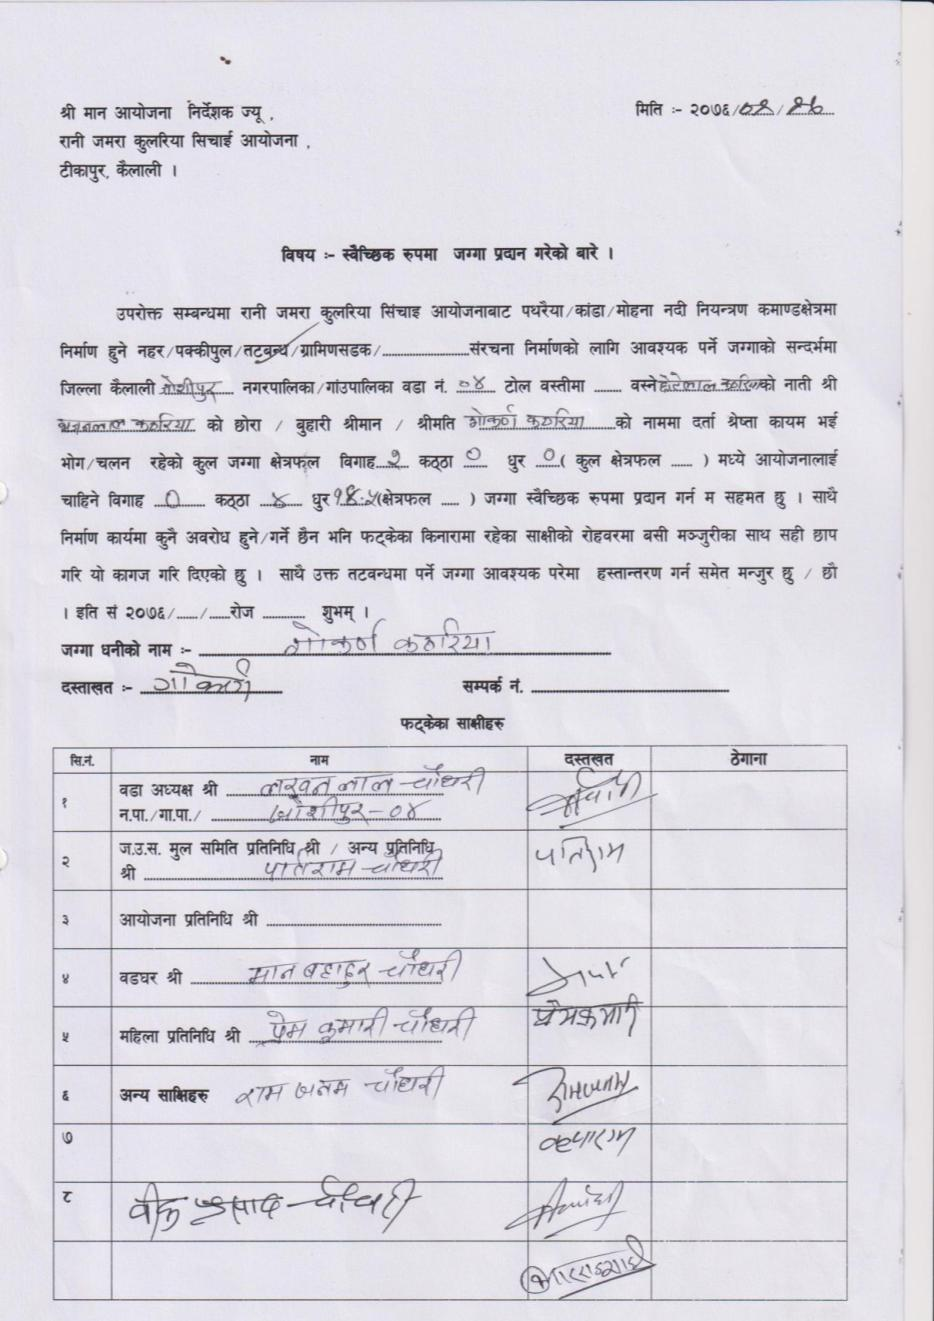 श्री मान आयोजना निर्देशक ज्यू ,
मिति :- २०७६/०९/१८
रानी जमरा कुलरिया सिचाई आयोजना ,
टीकापुर, कैलाली ।
विषय :- स्वैच्छिक रुपमा जग्गा प्रदान गरेको बारे ।
उपरोक्त सम्बन्धमा रानी जमरा कुलरिया सिंचाइ आयोजनाबाट पथरैया/कांडा/मोहना नदी नियन्त्रण कमाण्डक्षेत्रमा
निर्माण हुने नहर/पक्कीपुल/तटबन्ध/ग्रामिणसडक/....................संरचना निर्माणको लागि आवश्यक पर्ने जग्गाको सन्दर्भमा
जिल्ला कैलाली जोशीपुर नगरपालिका/गांउपालिका वडा नं. ०४ टोल वस्तीमा ....... वस्ने होरीलाल कठरिया को नाती श्री
कठरिया को छोरा / बुहारी श्रीमान / श्रीमति गोकर्ण कठरिया को नाममा दर्ता श्रेष्ता कायम भई
भोग/चलन रहेको कुल जग्गा क्षेत्रफल विगाह २ कठ्ठा ० धुर ० ( कुल क्षेत्रफल ...... ) मध्ये आयोजनालाई
चाहिने विगाह ० कठ्ठा ४ धुर १४.५ (क्षेत्रफल ..... ) जग्गा स्वैच्छिक रुपमा प्रदान गर्न म सहमत छु । साथै
निर्माण कार्यमा कुनै अवरोध हुने/गर्ने छैन भनि फट्केका किनारामा रहेका साक्षीको रोहवरमा बसी मञ्जुरीका साथ सही छाप
गरि यो कागज गरि दिएको छु । साथै उक्त तटवन्धमा पर्ने जग्गा आवश्यक परेमा हस्तान्तरण गर्न समेत मन्जुर छु / छौ
। इति सं २०७६/....../......रोज ........... शुभम् ।
जग्गा धनीको नाम :- गोकर्ण कठरिया
दस्ताखत :- गोकर्ण सम्पर्क नं. ..................
फट्केका साक्षीहरु
सि.नं. नाम दस्तखत ठेगाना
१ वडा अध्यक्ष श्री लखन लाल चौधरी
न.पा./गा.पा./ जोशीपुर-०४
२ ज.उ.स. मुल समिति प्रतिनिधि श्री / अन्य प्रतिनिधि
श्री पतिराम चौधरी पतिराम
३ आयोजना प्रतिनिधि श्री ..................
४ वडघर श्री मान बहादुर चौधरी
५ महिला प्रतिनिधि श्री प्रेम कुमारी चौधरी प्रेमकुमारी
६ अन्य साक्षिहरु राम जनम चौधरी रामजनम
७
८ प्रसाद चौधरी